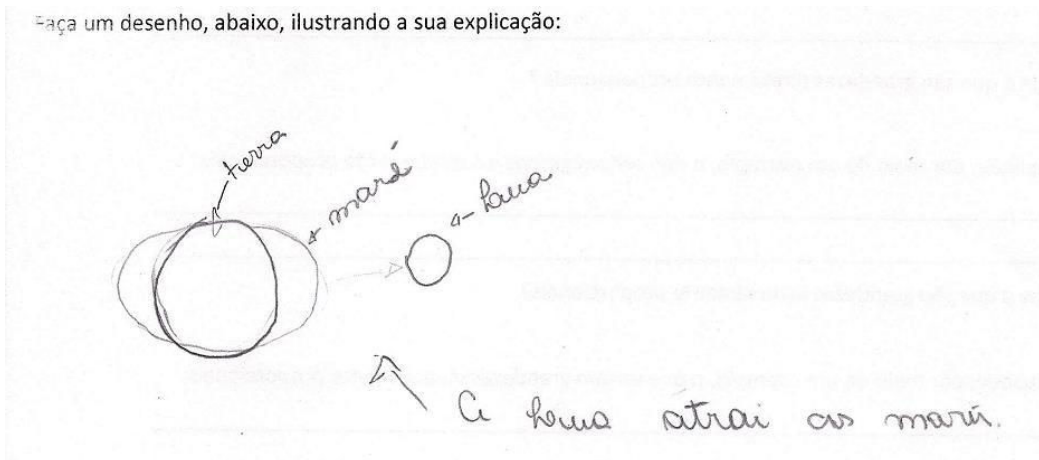 Faça um desenho, abaixo, ilustrando a sua explicação:
terra
maré
Lua
A Lua atrai as marés.